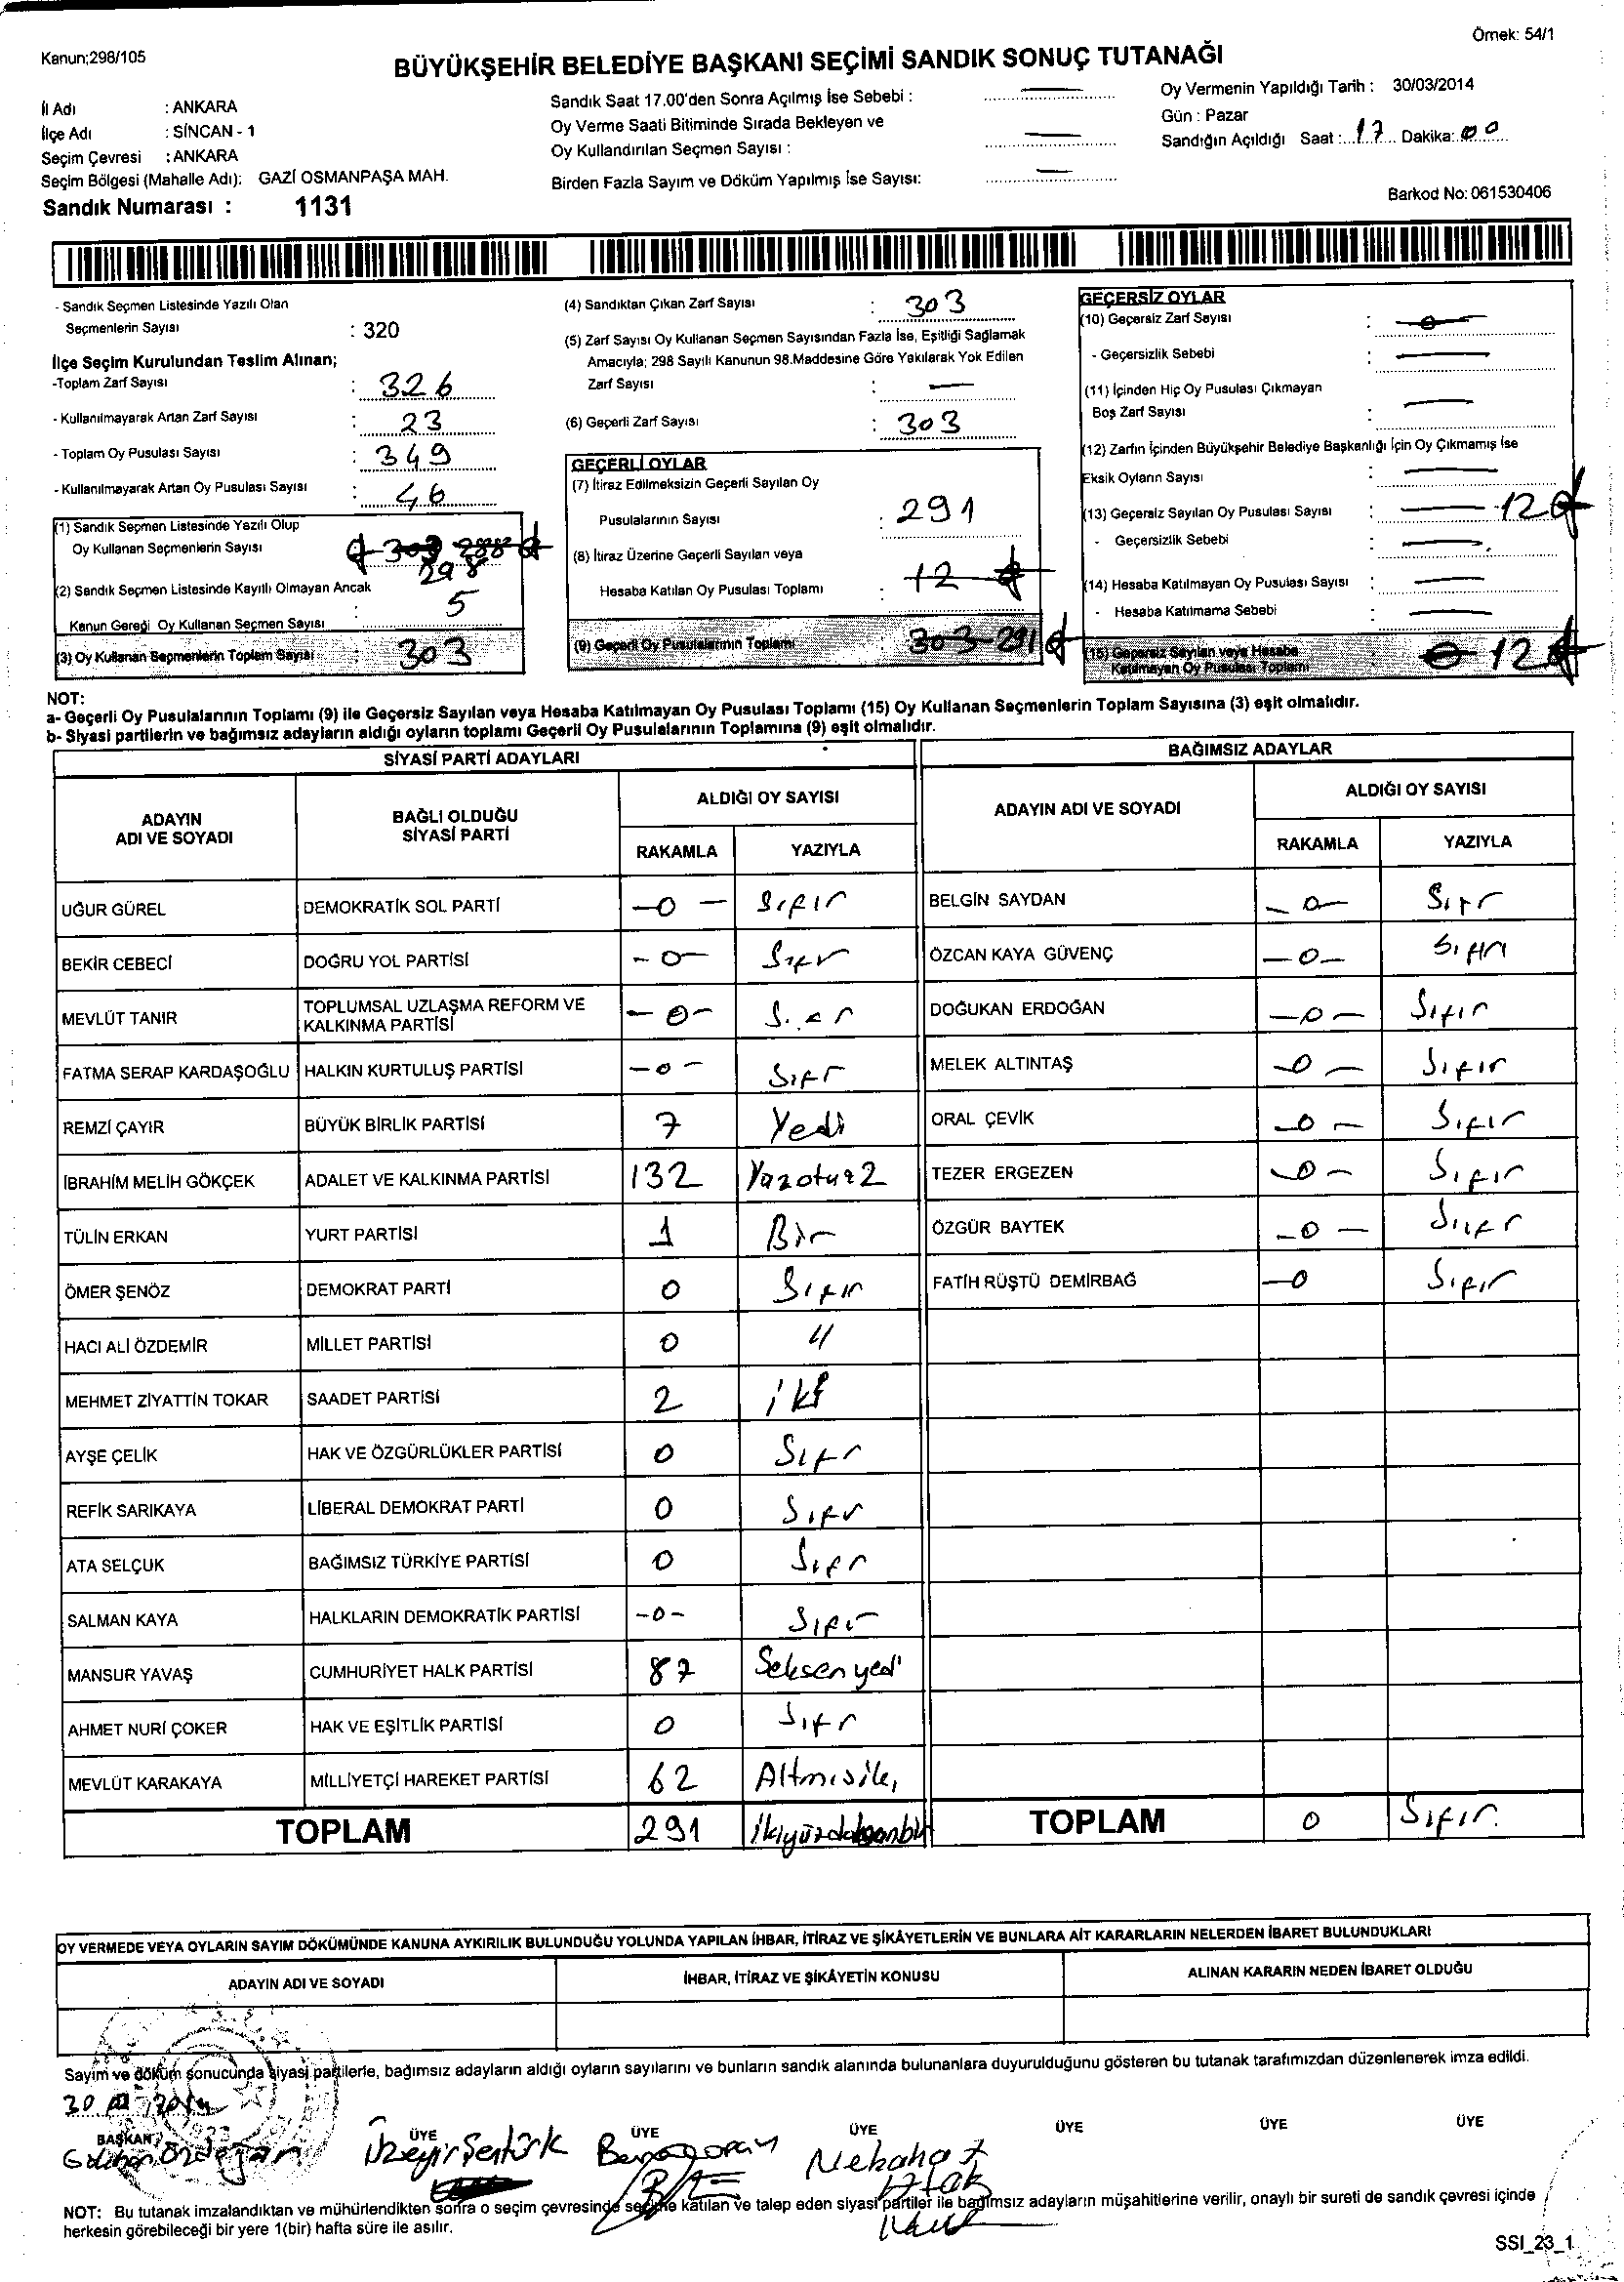 Örnek: 54/1
Kanun;298/105
BÜYÜKŞEHİR BELEDİYE BAŞKANI SEÇİMİ SANDIK SONUÇ TUTANAĞI
İl Adı : ANKARA
İlçe Adı : SİNCAN - 1
Seçim Çevresi : ANKARA
Seçim Bölgesi (Mahalle Adı): GAZİ OSMANPAŞA MAH.
Sandık Numarası : 1131
Sandık Saat 17.00'den Sonra Açılmış İse Sebebi : —
Oy Verme Saati Bitiminde Sırada Bekleyen ve
Oy Kullandırılan Seçmen Sayısı : —
Birden Fazla Sayım ve Döküm Yapılmış İse Sayısı: —
Oy Vermenin Yapıldığı Tarih : 30/03/2014
Gün : Pazar
Sandığın Açıldığı Saat :...17... Dakika:..00...
Barkod No: 061530406
- Sandık Seçmen Listesinde Yazılı Olan
Seçmenlerin Sayısı : 320
İlçe Seçim Kurulundan Teslim Alınan;
-Toplam Zarf Sayısı : 326
- Kullanılmayarak Artan Zarf Sayısı : 23
- Toplam Oy Pusulası Sayısı : 349
- Kullanılmayarak Artan Oy Pusulası Sayısı : 46
(1) Sandık Seçmen Listesinde Yazılı Olup
Oy Kullanan Seçmenlerin Sayısı 303 288
298
(2) Sandık Seçmen Listesinde Kayıtlı Olmayan Ancak
Kanun Gereği Oy Kullanan Seçmen Sayısı 5
(3) Oy Kullanan Seçmenlerin Toplam Sayısı 303
(4) Sandıktan Çıkan Zarf Sayısı : 303
(5) Zarf Sayısı Oy Kullanan Seçmen Sayısından Fazla İse, Eşitliği Sağlamak
Amacıyla; 298 Sayılı Kanunun 98.Maddesine Göre Yakılarak Yok Edilen
Zarf Sayısı : —
(6) Geçerli Zarf Sayısı : 303
GEÇERLİ OYLAR
(7) İtiraz Edilmeksizin Geçerli Sayılan Oy
Pusulalarının Sayısı : 291
(8) İtiraz Üzerine Geçerli Sayılan veya
Hesaba Katılan Oy Pusulası Toplamı : 12
(9) Geçerli Oy Pusulalarının Toplamı : 303-291
GEÇERSİZ OYLAR
(10) Geçersiz Zarf Sayısı : 0
- Geçersizlik Sebebi : —
(11) İçinden Hiç Oy Pusulası Çıkmayan
Boş Zarf Sayısı : —
(12) Zarfın İçinden Büyükşehir Belediye Başkanlığı İçin Oy Çıkmamış İse
Eksik Oyların Sayısı : —
(13) Geçersiz Sayılan Oy Pusulası Sayısı : — 12
- Geçersizlik Sebebi : —
(14) Hesaba Katılmayan Oy Pusulası Sayısı : —
- Hesaba Katılmama Sebebi : —
(15) Geçersiz Sayılan veya Hesaba
Katılmayan Oy Pusulası Toplamı 0 12
NOT:
a- Geçerli Oy Pusulalarının Toplamı (9) ile Geçersiz Sayılan veya Hesaba Katılmayan Oy Pusulası Toplamı (15) Oy Kullanan Seçmenlerin Toplam Sayısına (3) eşit olmalıdır.
b- Siyasi partilerin ve bağımsız adayların aldığı oyların toplamı Geçerli Oy Pusulalarının Toplamına (9) eşit olmalıdır.
SİYASİ PARTİ ADAYLARI
ADAYIN ADI VE SOYADI BAĞLI OLDUĞU SİYASİ PARTİ ALDIĞI OY SAYISI
RAKAMLA YAZIYLA
UĞUR GÜREL DEMOKRATİK SOL PARTİ -0- Sıfır
BEKİR CEBECİ DOĞRU YOL PARTİSİ -0- Sıfır
MEVLÜT TANIR TOPLUMSAL UZLAŞMA REFORM VE KALKINMA PARTİSİ -0-
FATMA SERAP KARDAŞOĞLU HALKIN KURTULUŞ PARTİSİ -0- Sıfır
REMZİ ÇAYIR BÜYÜK BİRLİK PARTİSİ 7 Yedi
İBRAHİM MELİH GÖKÇEK ADALET VE KALKINMA PARTİSİ 132
TÜLİN ERKAN YURT PARTİSİ 1 Bir
ÖMER ŞENÖZ DEMOKRAT PARTİ 0 Sıfır
HACI ALİ ÖZDEMİR MİLLET PARTİSİ 0 "
MEHMET ZİYATTİN TOKAR SAADET PARTİSİ 2 iki
AYŞE ÇELİK HAK VE ÖZGÜRLÜKLER PARTİSİ 0 Sıfır
REFİK SARIKAYA LİBERAL DEMOKRAT PARTİ 0 Sıfır
ATA SELÇUK BAĞIMSIZ TÜRKİYE PARTİSİ 0 Sıfır
SALMAN KAYA HALKLARIN DEMOKRATİK PARTİSİ -0- Sıfır
MANSUR YAVAŞ CUMHURİYET HALK PARTİSİ 87 Seksenyedi
AHMET NURİ ÇOKER HAK VE EŞİTLİK PARTİSİ 0 Sıfır
MEVLÜT KARAKAYA MİLLİYETÇİ HAREKET PARTİSİ 62 Altmışiki
TOPLAM 291 İkiyüzdoksanbir
BAĞIMSIZ ADAYLAR
ADAYIN ADI VE SOYADI ALDIĞI OY SAYISI
RAKAMLA YAZIYLA
BELGİN SAYDAN -0- Sıfır
ÖZCAN KAYA GÜVENÇ -0- Sıfır
DOĞUKAN ERDOĞAN -0- Sıfır
MELEK ALTINTAŞ -0- Sıfır
ORAL ÇEVİK -0- Sıfır
TEZER ERGEZEN -0- Sıfır
ÖZGÜR BAYTEK -0- Sıfır
FATİH RÜŞTÜ DEMİRBAĞ -0 Sıfır
TOPLAM 0 Sıfır
OY VERMEDE VEYA OYLARIN SAYIM DÖKÜMÜNDE KANUNA AYKIRILIK BULUNDUĞU YOLUNDA YAPILAN İHBAR, İTİRAZ VE ŞİKÂYETLERİN VE BUNLARA AİT KARARLARIN NELERDEN İBARET BULUNDUKLARI
ADAYIN ADI VE SOYADI İHBAR, İTİRAZ VE ŞİKÂYETİN KONUSU ALINAN KARARIN NEDEN İBARET OLDUĞU
Sayım ve döküm sonucunda siyasi partilerle, bağımsız adayların aldığı oyların sayılarını ve bunların sandık alanında bulunanlara duyurulduğunu gösteren bu tutanak tarafımızdan düzenlenerek imza edildi.
BAŞKAN ÜYE ÜYE ÜYE ÜYE ÜYE ÜYE
Üzeyir Şentürk
NOT: Bu tutanak imzalandıktan ve mühürlendikten sonra o seçim çevresinde seçime katılan ve talep eden siyasi partiler ile bağımsız adayların müşahitlerine verilir, onaylı bir sureti de sandık çevresi içinde
herkesin görebileceği bir yere 1(bir) hafta süre ile asılır.
SSI_23_1